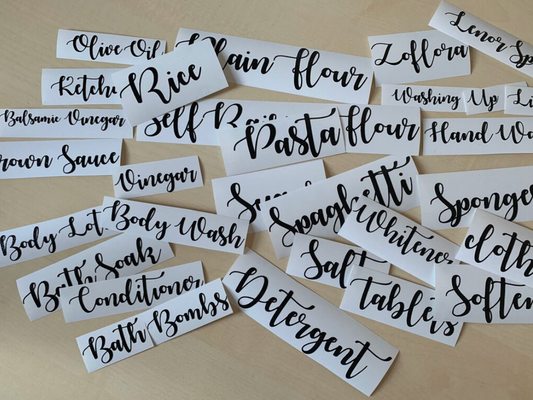 Olive Oil
Plain flour
Zoflora
Lenor Sp
Ketch
Rice
Washing Up Li
Balsamic Vinegar
Self Rai flour
Pasta
Hand Wa
rown Sauce
Vinegar
Spaghetti
Sponge
Body Lot
Body Wash
Whitener
cloth
Bath Soak
Salt
Conditioner
Tablets
Soften
Bath Bombs
Detergent